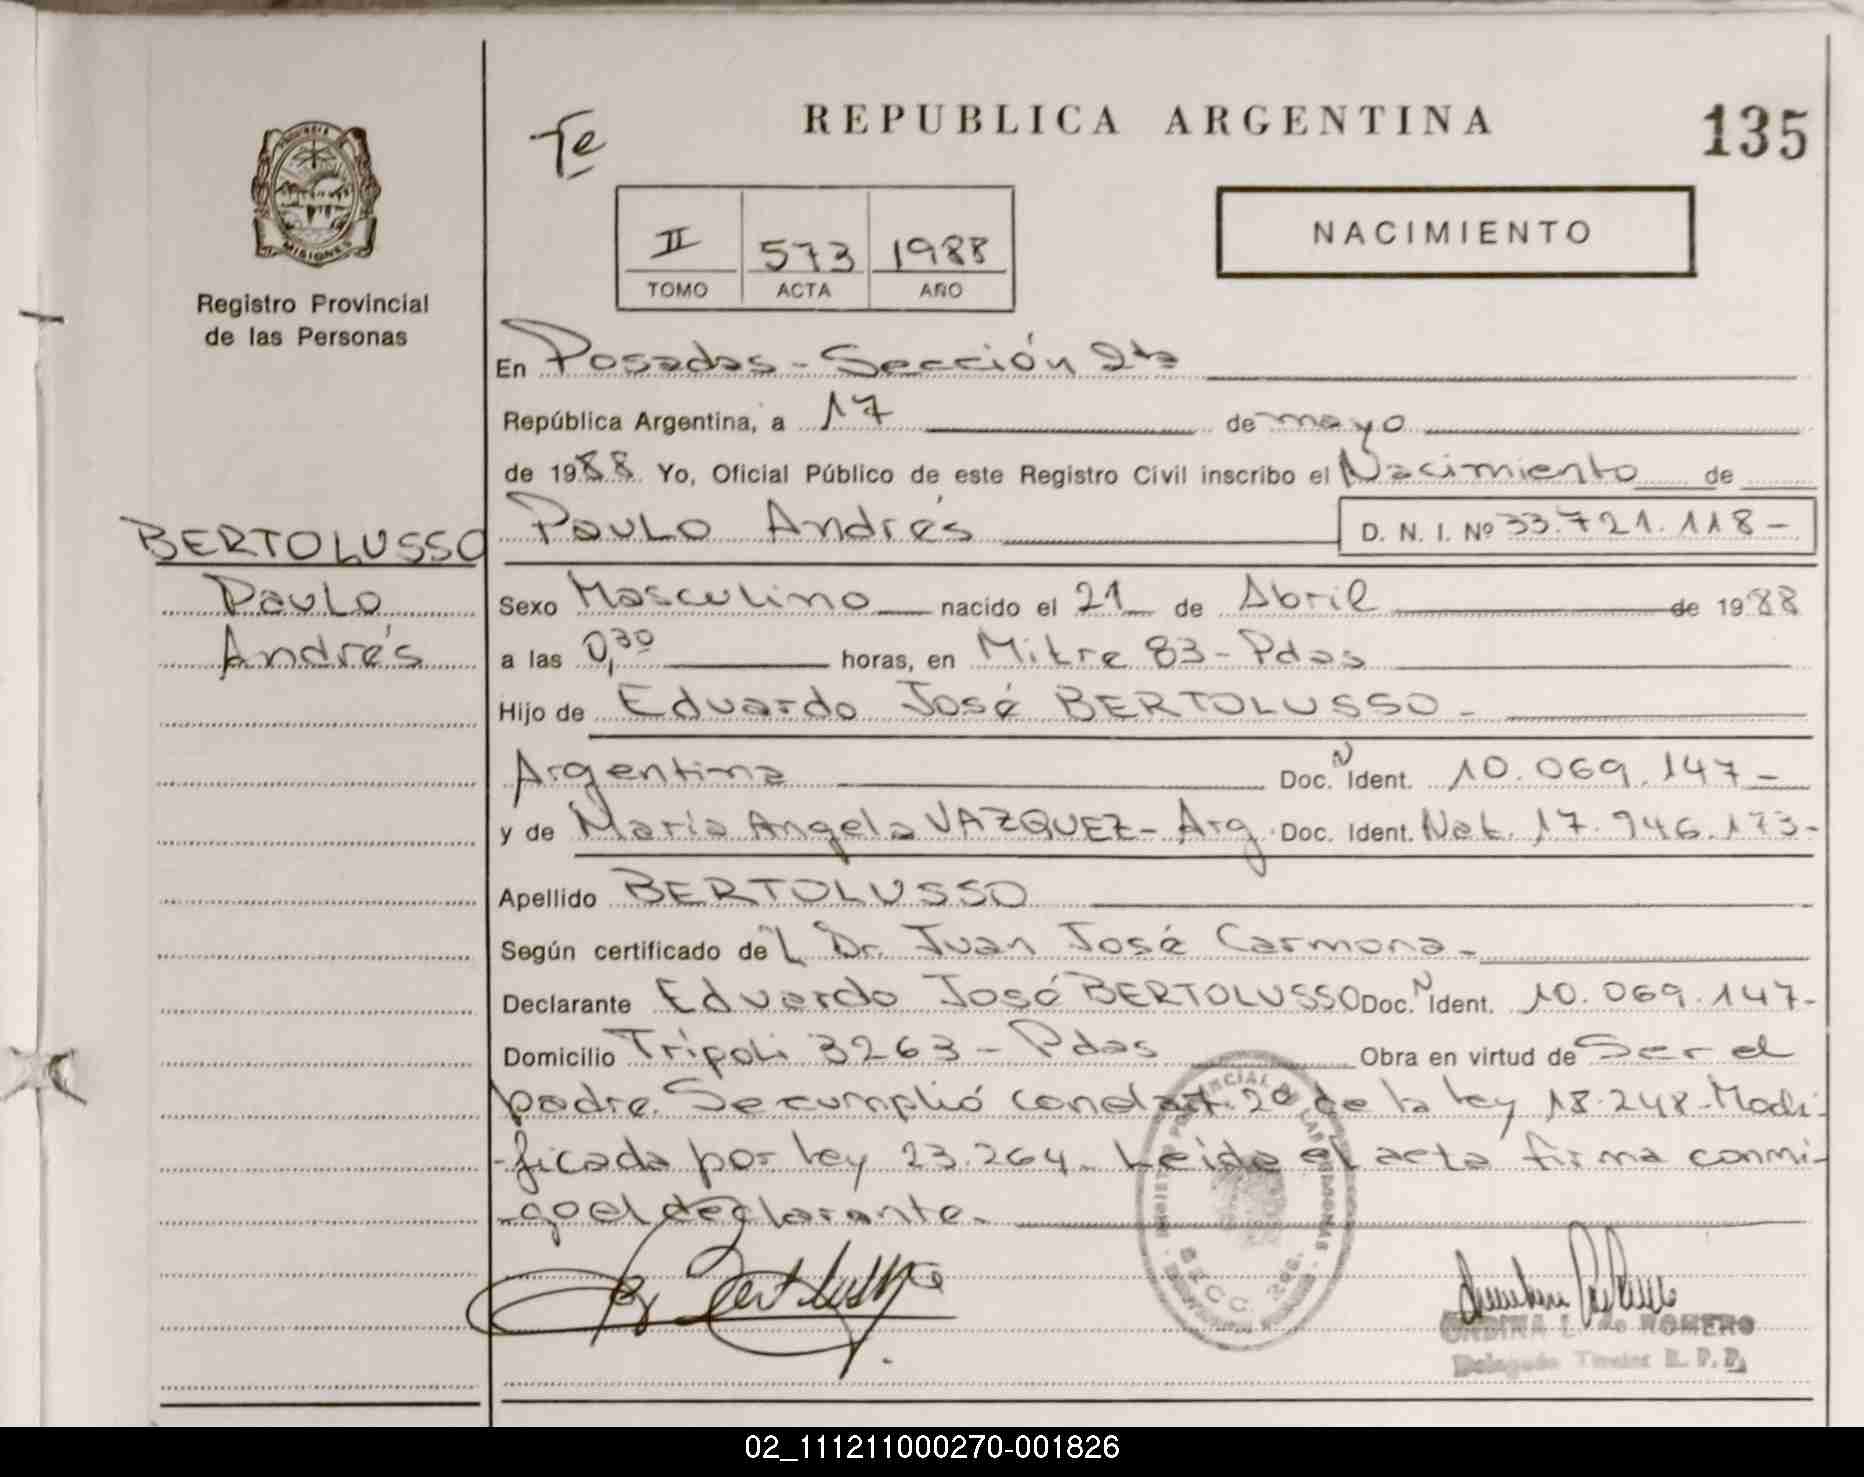 REPUBLICA ARGENTINA
135
Te
II
573
1988
TOMO
ACTA
AÑO
NACIMIENTO
MISIONES
Registro Provincial
de las Personas
En Posadas - Sección 2da
República Argentina, a 17 de mayo
de 1988 Yo, Oficial Público de este Registro Civil inscribo el Nacimiento de
BERTOLUSSO
Paulo
Andrés
Paulo Andrés
D. N. I. Nº 33.721.118-
Sexo Masculino nacido el 21 de Abril de 1988
a las 0,30 horas, en Mitre 83 - Pdas
Hijo de Eduardo José BERTOLUSSO -
Argentina Doc. N Ident. 10.069.147-
y de María Angela VAZQUEZ - Arg. Doc. Ident. Nat. 17.946.173-
Apellido BERTOLUSSO
Según certificado de l Dr. Juan José Carmona -
Declarante Eduardo José BERTOLUSSO Doc. N Ident. 10.069.147-
Domicilio Trípoli 3263 - Pdas Obra en virtud de Ser el
padre. Se cumplió con el art. 2º de la ley 18.248 - Modi-
-ficada por ley 23.264. Leída el acta firma conmi-
-go el declarante.
SECC. 
ONDINA L. de ROMERO
Delegada Titular R. P. P.
02_111211000270-001826